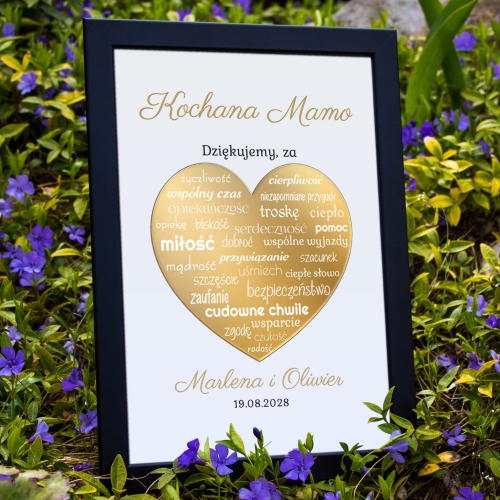 Kochana Mamo
Dziękujemy, za
życzliwość cierpliwość
wspólny czas niezapomniane przygody
opiekuńczość troskę ciepło
opiekę bliskość serdeczność pomoc
miłość dobroć wspólne wyjazdy
przywiązanie szacunek
mądrość uśmiech ciepłe słowo
szczęście bezpieczeństwo
zaufanie
cudowne chwile
zgodę wsparcie
czułość
radość
Marlena i Oliwier
19.08.2028